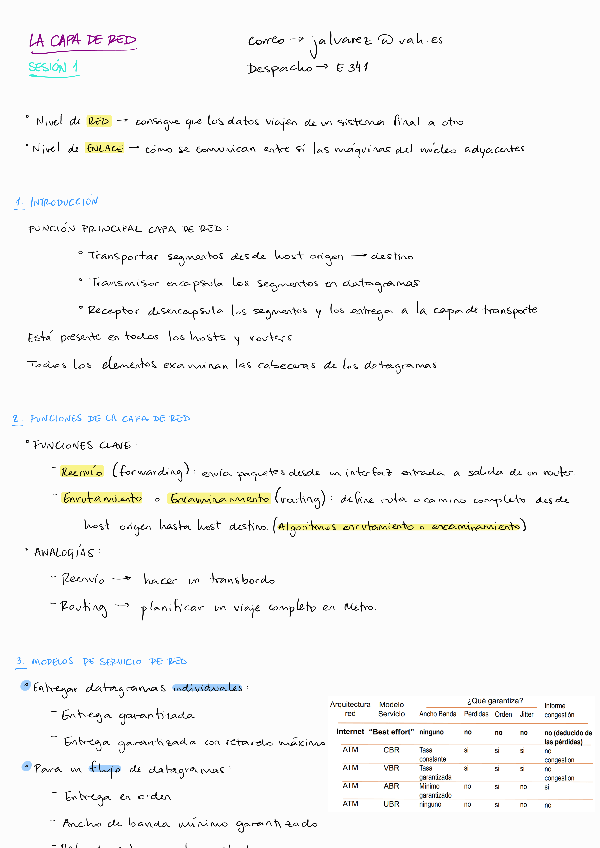 LA CAPA DE RED
correo → jalvarez @ uah.es
SESIÓN 1
Despacho → E 341
° Nivel de RED → consigue que los datos viajen de un sistema final a otro
° Nivel de ENLACE → cómo se comunican entre sí las máquinas del núcleo adyacentes
1. INTRODUCCIÓN
FUNCIÓN PRINCIPAL CAPA DE RED:
° Transportar segmentos desde host origen → destino
° Transmisor encapsula los segmentos en datagramas
° Receptor desencapsula los segmentos y los entrega a la capa de transporte
Está presente en todos los hosts y routers
Todos los elementos examinan las cabeceras de los datagramas
2. FUNCIONES DE LA CAPA DE RED
° FUNCIONES CLAVE:
- Reenvío (forwarding): envía paquetes desde un interfaz entrada a salida de un router
- Enrutamiento o Encaminamiento (routing): define ruta o camino completo desde
host origen hasta host destino (Algoritmos enrutamiento o encaminamiento)
° ANALOGÍAS:
- Reenvío → hacer un transbordo
- Routing → planificar un viaje completo en Metro.
3. MODELOS DE SERVICIO DE RED
° Entregar datagramas individuales:
- Entrega garantizada
- Entrega garantizada con retardo máximo
° Para un flujo de datagramas:
- Entrega en orden
- Ancho de banda mínimo garantizado
Arquitectura red Modelo Servicio ¿Qué garantiza? Informe congestión
Ancho Banda Perdidas Orden Jitter
Internet "Best effort" ninguno no no no no (deducido de las pérdidas)
ATM CBR Tasa constante si si si no congestion
ATM VBR Tasa garantizada si si si no congestion
ATM ABR Mínimo garantizado no si no si
ATM UBR ninguno no si no no